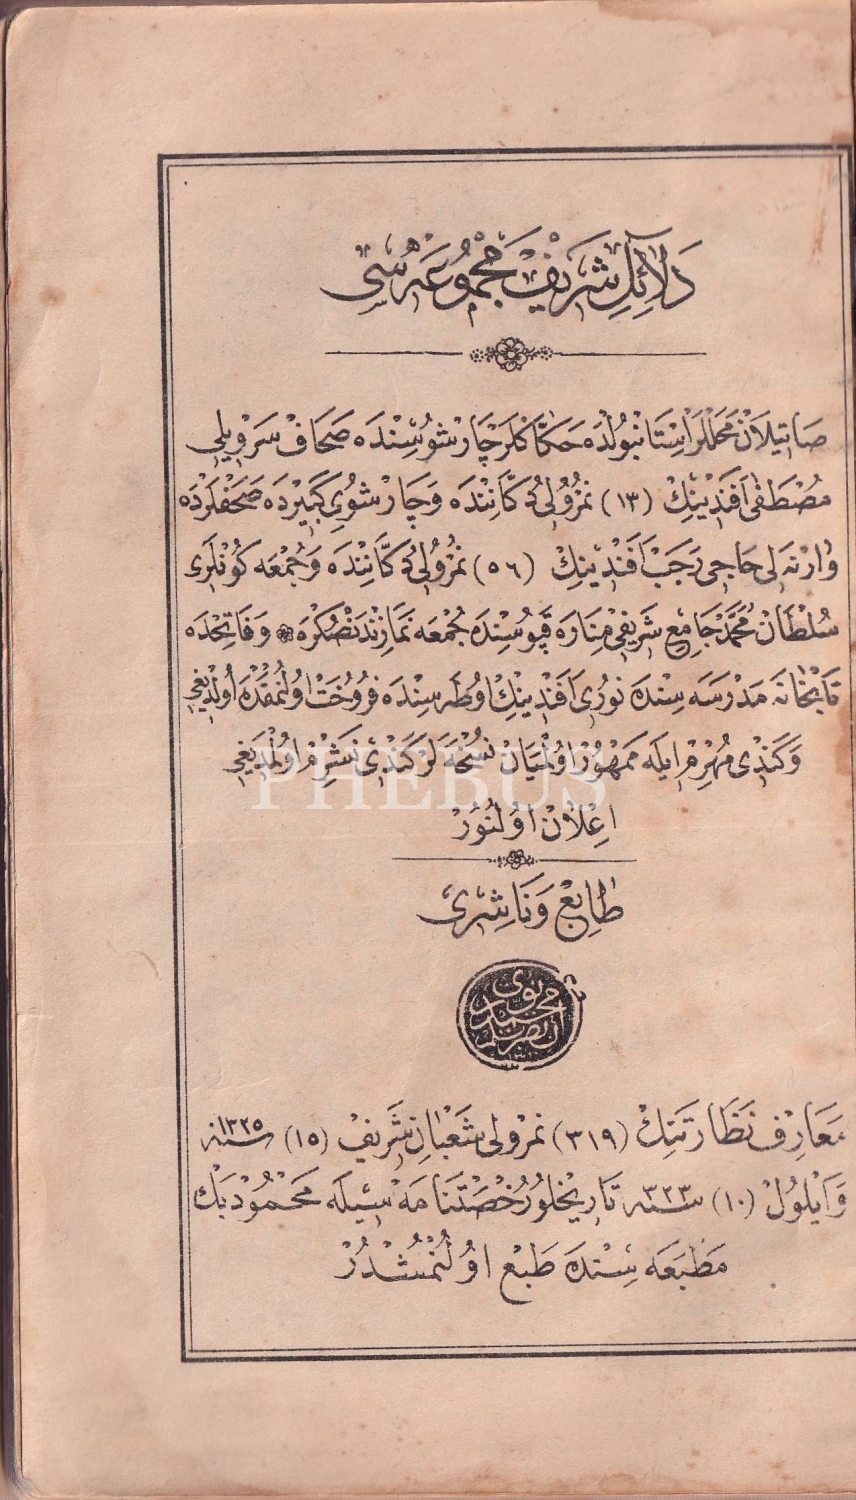 دَلَائِلِ شَرِيفْ مَجْمُوعَهسِى
صَاتِيلَانْ مَحَلْلَرْ اِسْتَانْبُولْدَه حَكَّاكْلَرْ چَارْشُوسِنْدَه صَحَافْ سَرْوِيلِى
مُصْطَفٰى اَفَنْدِينِكْ (١٣) نُمْرُولِى دُكَّانِنْدَه وَچَارْشُوىِ كَبِيرْدَه صَحَفْلَرْدَه
وَارْنَه لِى حَاجِى رَجَبْ اَفَنْدِينِكْ (٥٦) نُمْرُولِى دُكَّانِنْدَه وَجُمْعَه كُونْلَرِى
سُلْطَانْ مُحَمَّدْ جَامِعِ شَرِيفِى مِنَارَه قَپُوسِنْدَه جُمْعَه نَمَازِنْدَنْصُكْرَه وَفَاتِحْدَه
تَابْخَانَه مَدْرَسَه سِنْدَه نُورِى اَفَنْدِينِكْ اوُطَه سِنْدَه فُرُوخَتْ اوُلُنْمَقْدَه اوُلْدِيغِى
وَكَنْدِى مُهْرِمْ اِيلَه مَمْهُورْ اوُلْمَيَانْ نُسْخَه لَرْ كَنْدِى نَشْرِمْ اوُلْمَدِيغِى
اِعْلَانْ اوُلُنُورْ
طَابِعْ وَنَاشِرِى
مَعَارِفْ نَظَارَتِنِكْ (٣١٩) نُمْرولِى شَعْبَانِ شَرِيفْ (١٥) سنه ١٣٢٥
وَاَيْلُولْ (١٠) سنه ٣٢٣ تَارِيخْلُو رُخْصَتْنَامَه سِيلَه مَحْمُودْ بَكْ
مَطْبَعَه سِنْدَه طَبْعْ اوُلُنْمُشْدُرْ
PHEBUS